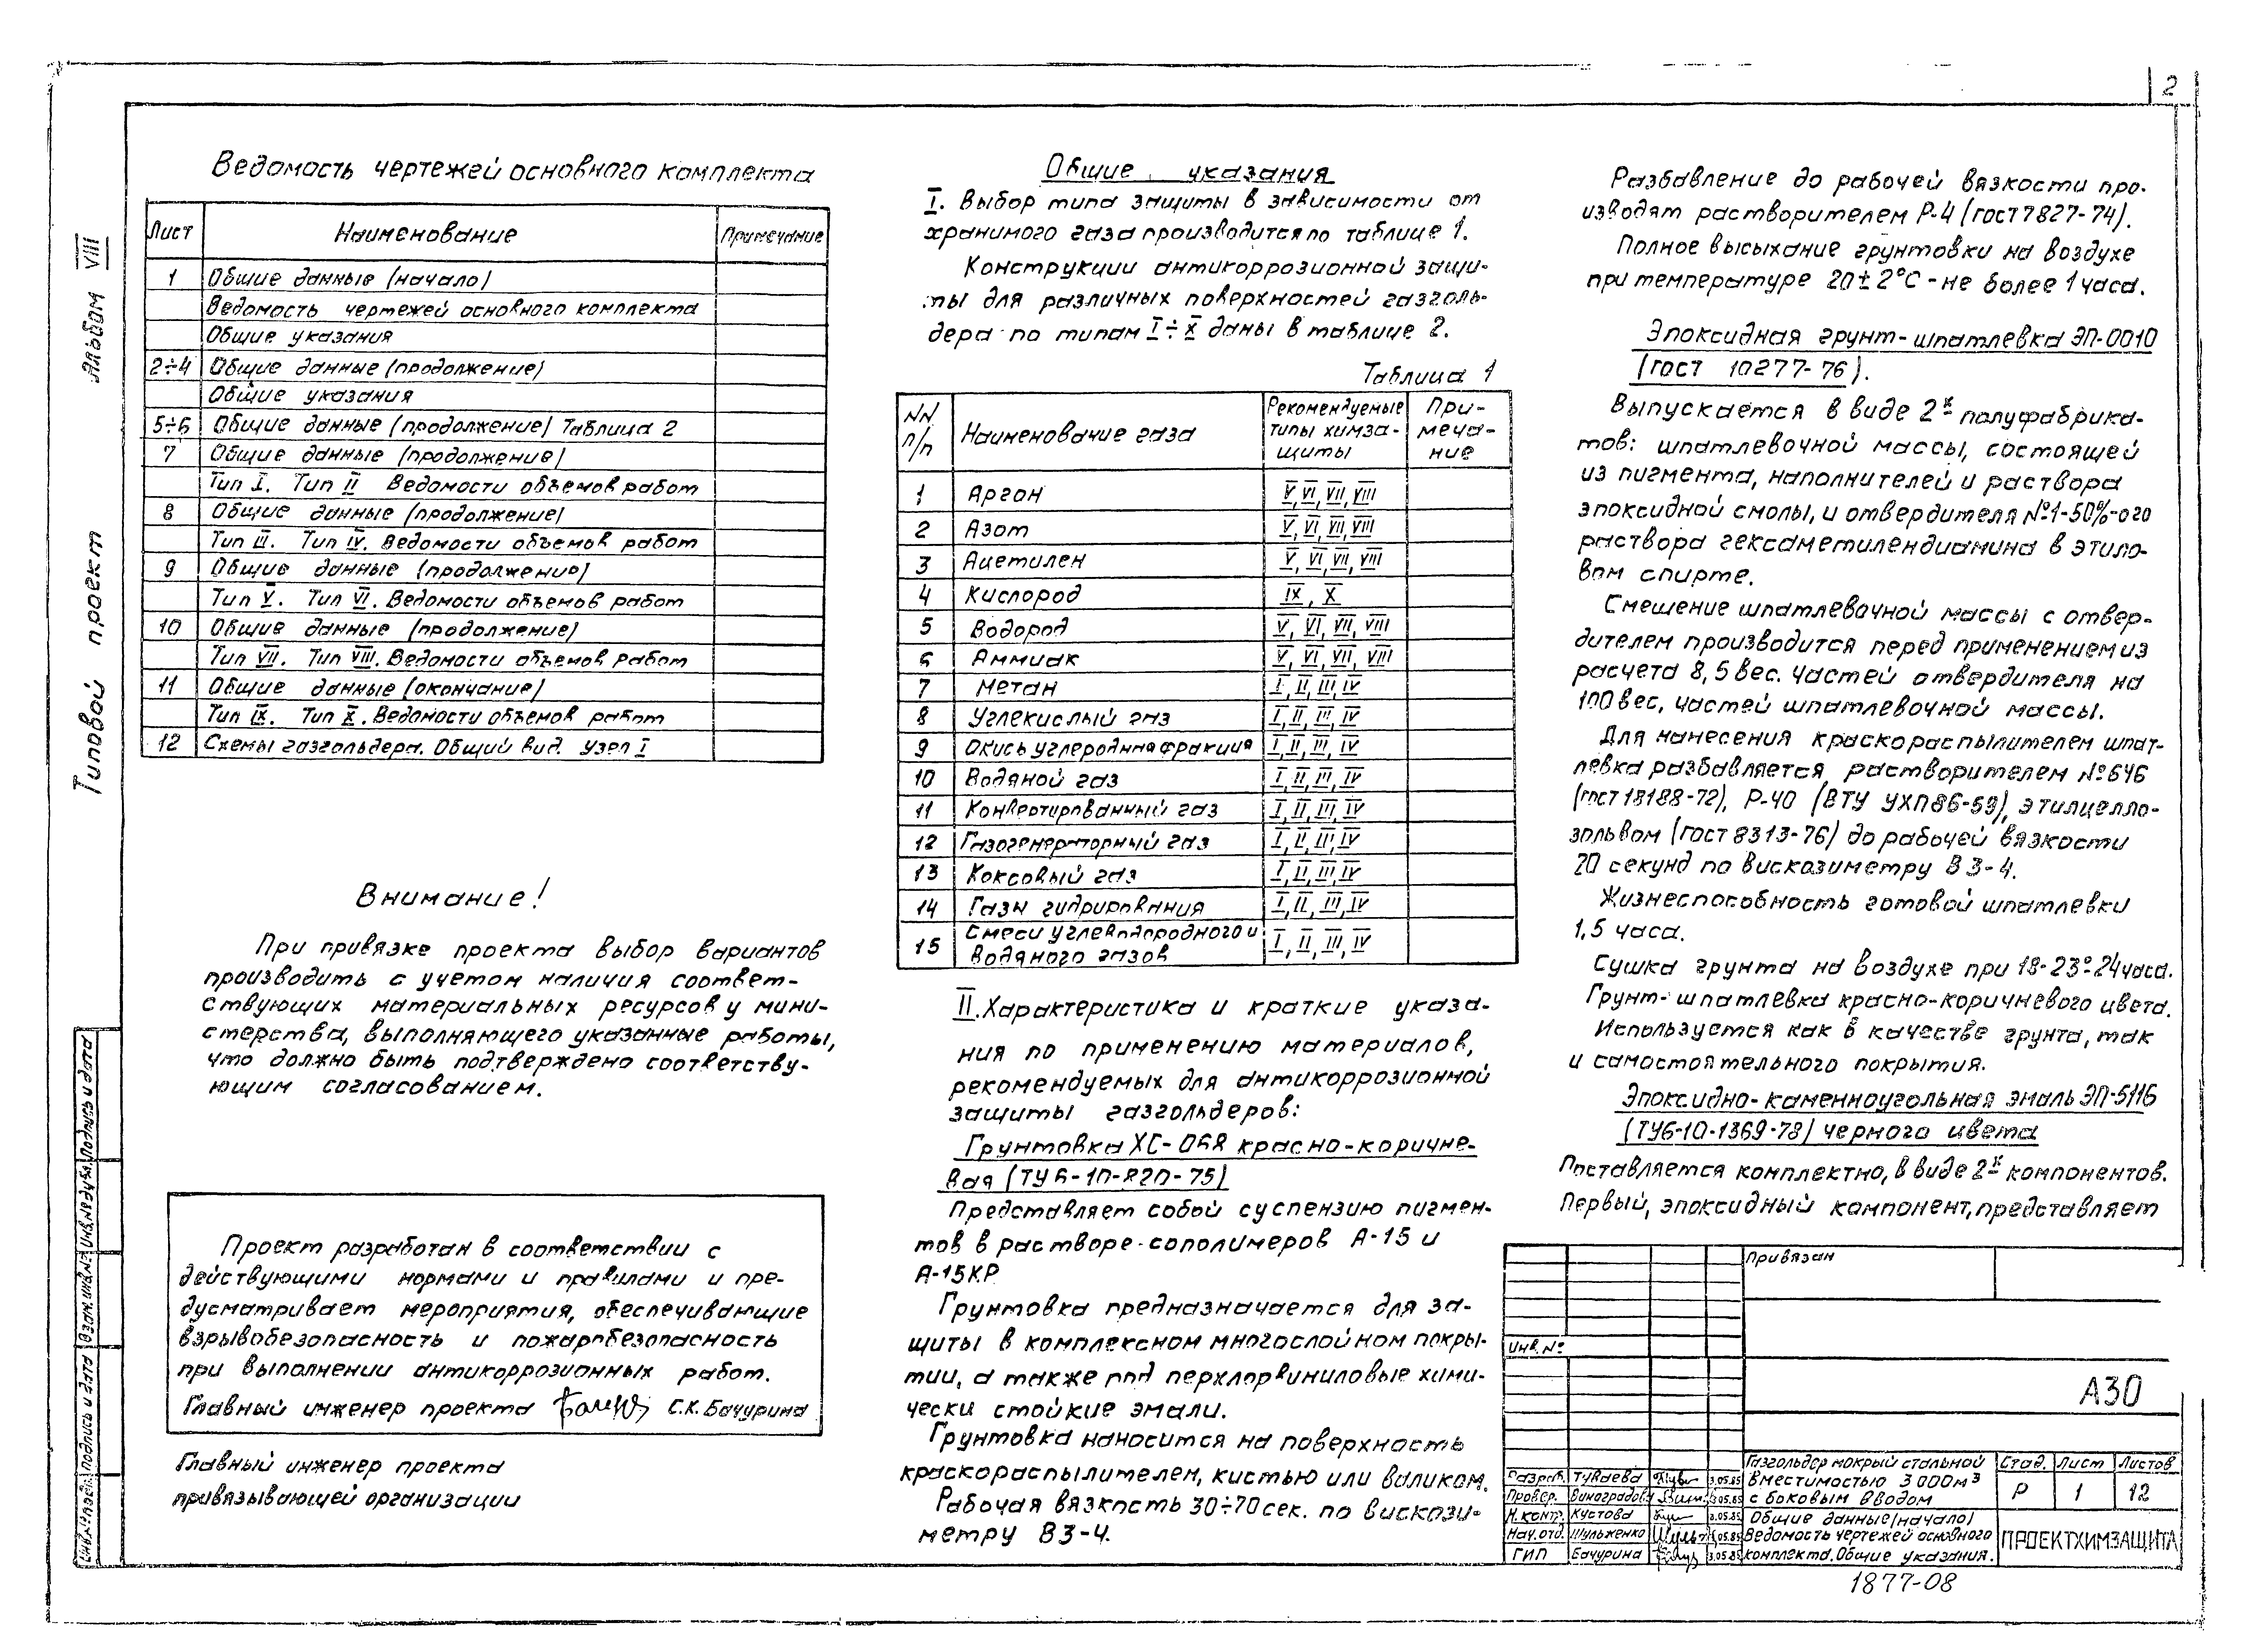 2
Альбом VIII
Типовой проект
Ведомость чертежей основного комплекта
Лист Наименование Примечание
1 Общие данные (начало)
Ведомость чертежей основного комплекта
Общие указания
2÷4 Общие данные (продолжение)
Общие указания
5÷6 Общие данные (продолжение) Таблица 2
7 Общие данные (продолжение)
Тип I. Тип II Ведомости объемов работ
8 Общие данные (продолжение)
Тип III. Тип IV. Ведомости объемов работ
9 Общие данные (продолжение)
Тип V. Тип VI. Ведомости объемов работ
10 Общие данные (продолжение)
Тип VII. Тип VIII. Ведомости объемов работ
11 Общие данные (окончание)
Тип IX. Тип X. Ведомости объемов работ
12 Схемы газгольдера. Общий вид. Узел I
Внимание!
При привязке проекта выбор вариантов
производить с учетом наличия соответ-
ствующих материальных ресурсов у мини-
стерства, выполняющего указанные работы,
что должно быть подтверждено соответству-
ющим согласованием.
Проект разработан в соответствии с
действующими нормами и правилами и пре-
дусматривает мероприятия, обеспечивающие
взрывобезопасность и пожаробезопасность
при выполнении антикоррозионных работ.
Главный инженер проекта С.К. Бачурина
Главный инженер проекта
привязывающей организации
Общие указания
I. Выбор типа защиты в зависимости от
хранимого газа производится по таблице 1.
Конструкции антикоррозионной защи-
ты для различных поверхностей газголь-
дера по типам I÷X даны в таблице 2.
Таблица 1
NN п/п Наименование газа Рекомендуемые типы химза-щиты При-меча-ние
1 Аргон V, VI, VII, VIII
2 Азот V, VI, VII, VIII
3 Ацетилен V, VI, VII, VIII
4 Кислород IX, X
5 Водород V, VI, VII, VIII
6 Аммиак V, VI, VII, VIII
7 Метан I, II, III, IV
8 Углекислый газ I, II, III, IV
9 Окись углеродная фракция I, II, III, IV
10 Водяной газ I, II, III, IV
11 Конвертированный газ I, II, III, IV
12 Газогенераторный газ I, II, III, IV
13 Коксовый газ I, II, III, IV
14 Газы гидрирования I, II, III, IV
15 Смеси углеводородного и водяного газов I, II, III, IV
II. Характеристика и краткие указа-
ния по применению материалов,
рекомендуемых для антикоррозионной
защиты газгольдеров:
Грунтовка ХС-068 красно-коричне-
вая (ТУ 6-10-820-75)
Представляет собой суспензию пигмен-
тов в растворе сополимеров А-15 и
А-15КР
Грунтовка предназначается для за-
щиты в комплексном многослойном покры-
тии, а также под перхлорвиниловые хими-
чески стойкие эмали.
Грунтовка наносится на поверхность
краскораспылителем, кистью или валиком.
Рабочая вязкость 30÷70 сек. по вискози-
метру ВЗ-4.
Разбавление до рабочей вязкости про-
изводят растворителем Р-4 (ГОСТ 7827-74).
Полное высыхание грунтовки на воздухе
при температуре 20±2°С - не более 1 часа.
Эпоксидная грунт-шпатлевка ЭП-0010
(ГОСТ 10277-76).
Выпускается в виде 2х полуфабрика-
тов: шпатлевочной массы, состоящей
из пигмента, наполнителей и раствора
эпоксидной смолы, и отвердителя №1-50%-ого
раствора гексаметилендиамина в этило-
вом спирте.
Смешение шпатлевочной массы с отвер-
дителем производится перед применением из
расчета 8,5 вес. частей отвердителя на
100 вес, частей шпатлевочной массы.
Для нанесения краскораспылителем шпат-
левка разбавляется растворителем №646
(ГОСТ 18188-72), Р-40 (ВТУ УХП86-59), этилцелло-
зольвом (ГОСТ 8313-76) до рабочей вязкости
20 секунд по вискозиметру ВЗ-4.
Жизнеспособность готовой шпатлевки
1,5 часа.
Сушка грунта на воздухе при 18-23°-24 часа.
Грунт-шпатлевка красно-коричневого цвета.
Используется как в качестве грунта, так
и самостоятельного покрытия.
Эпоксидно-каменноугольная эмаль ЭП-5116
(ТУ6-10-1369-78) черного цвета
Поставляется комплектно, в виде 2х компонентов.
Первый, эпоксидный компонент, представляет
Привязан
Инв. №
А30
Газгольдер мокрый стальной
вместимостью 3000м³
с боковым вводом
Стад. Лист Листов
Р 1 12
Разраб. Туваева 3.05.85
Провер. Виноградова 3.05.85
Н.контр. Кустова 3.05.85
Нач.отд. Шульженко 3.05.85
ГИП Бачурина 3.05.85
Общие данные (начало)
Ведомость чертежей основного
комплекта. Общие указания.
ПРОЕКТХИМЗАЩИТА
1877-08
Инв.№подл. Подпись и дата Взам.инв.№ Инв.№дубл. Подпись и дата